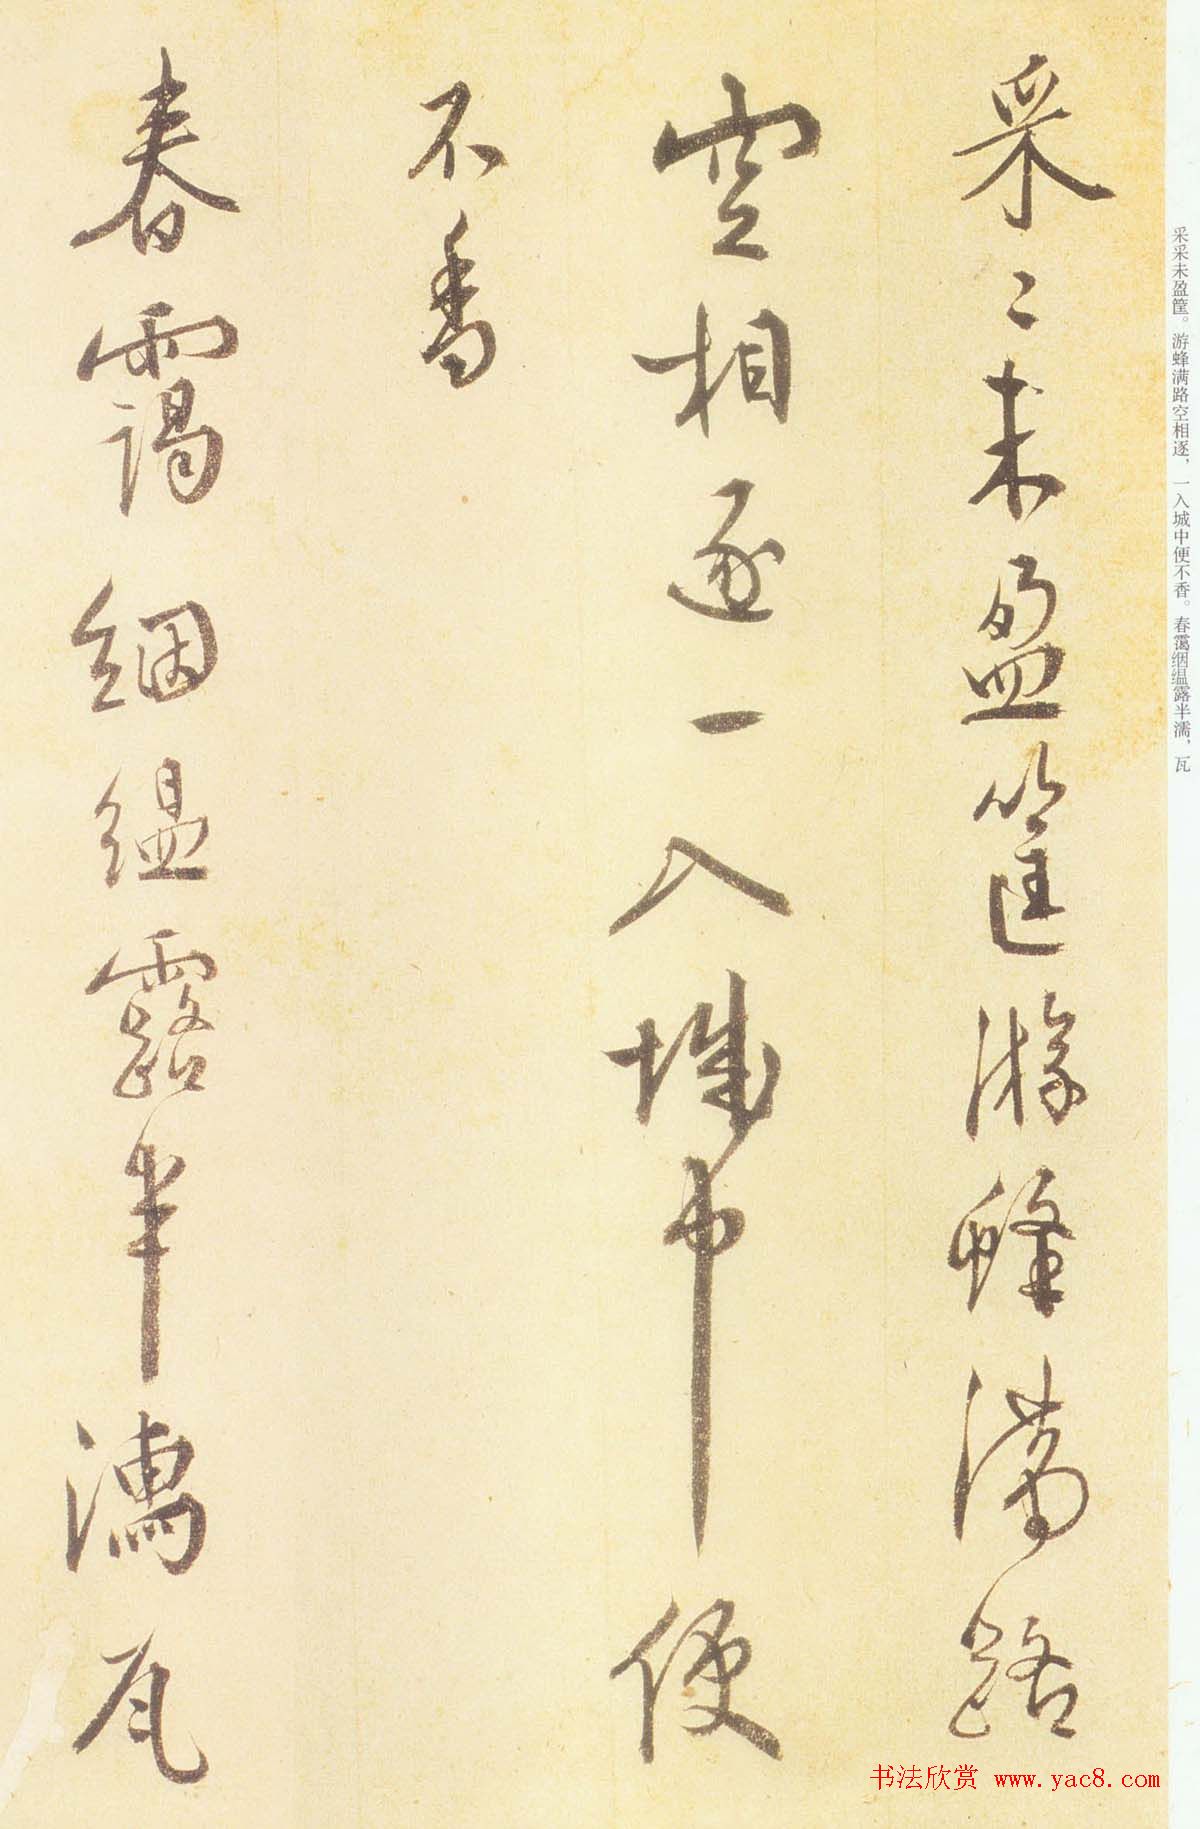 采采未盈筐。游蜂满路空相逐，一入城中便不香。春霭絪缊露半濡，瓦
采〻未盈筐游蜂满路
空相逐一入城中便
不香
春靄絪缊露半濡瓦
书法欣赏 www.yac8.com